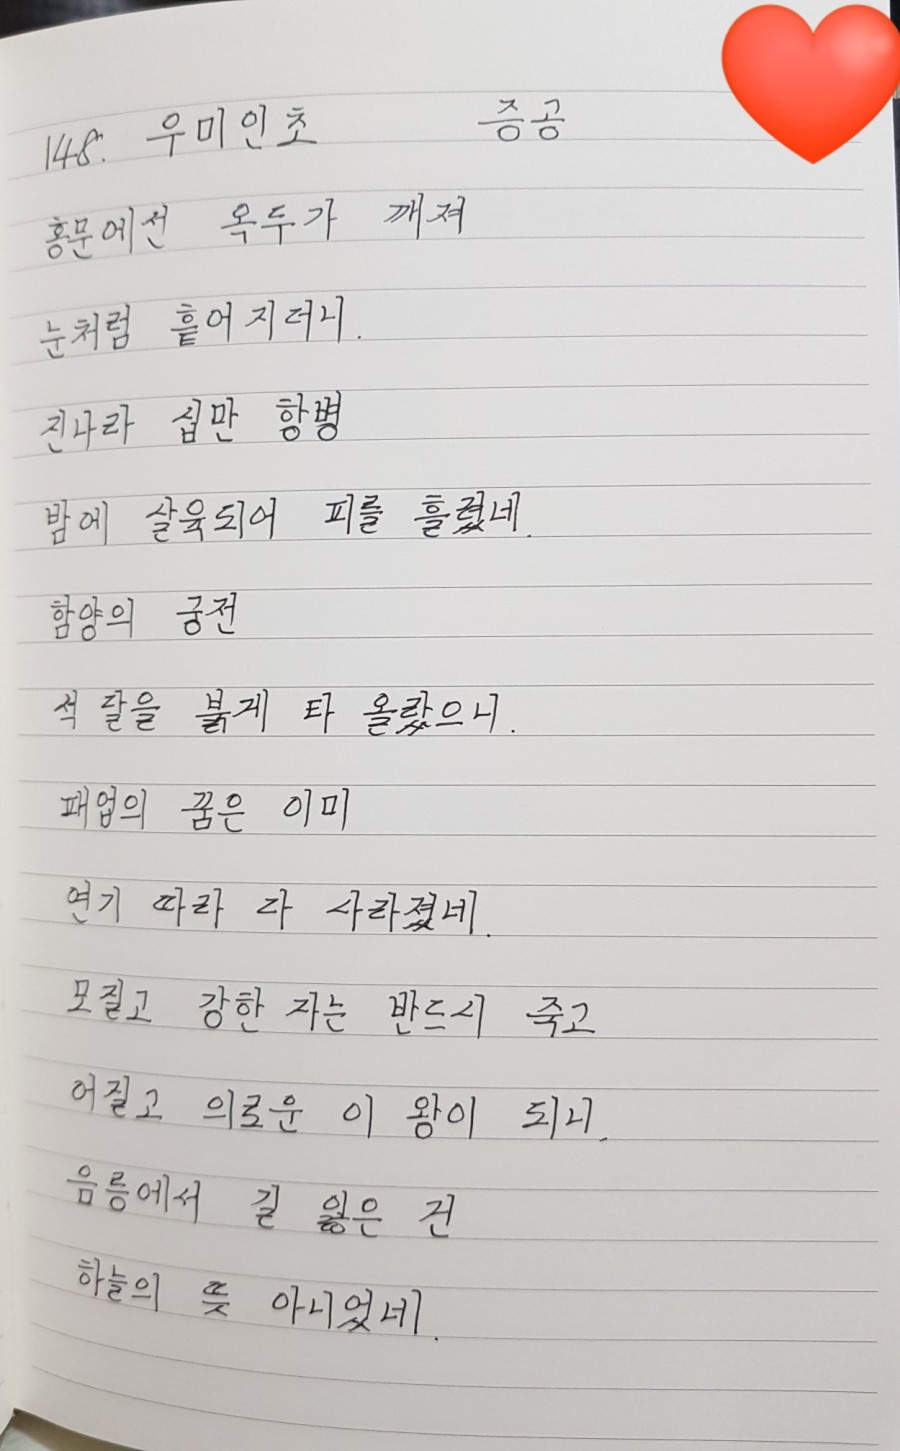 148. 우미인초 증공
홍문에선 옥두가 깨져
눈처럼 흩어지더니.
진나라 십만 항병
밤에 살육되어 피를 흘렸네.
함양의 궁전
석 달을 붉게 타 올랐으니.
패업의 꿈은 이미
연기 따라 다 사라졌네.
모질고 강한 자는 반드시 죽고
어질고 의로운 이 왕이 되니.
음릉에서 길 잃은 건
하늘의 뜻 아니었네.